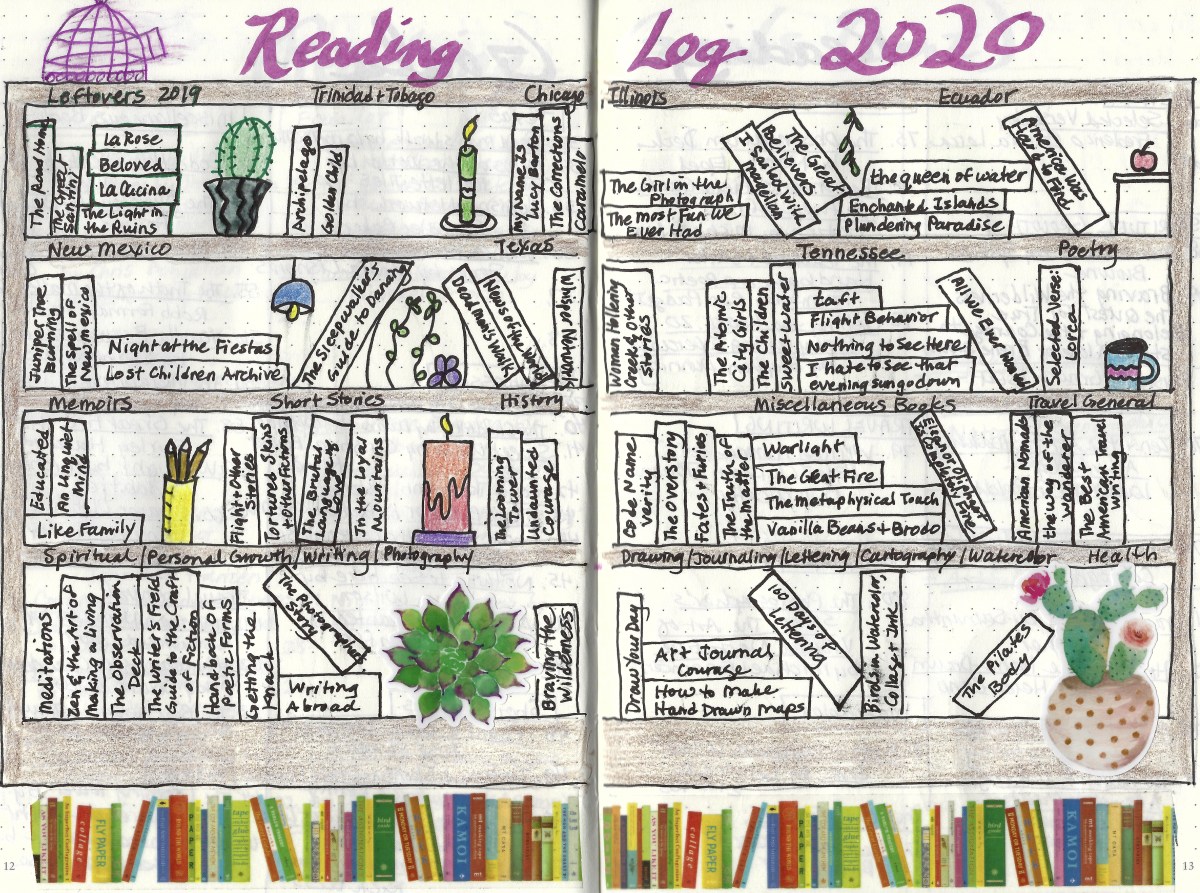 Reading Log 2020
Leftovers 2019
Trinidad + Tobago
Chicago
Illinois
Ecuador
The Road Home
The Great
LaRose
Beloved
La Cucina
The Light in
the Ruins
Archipelago
Golden Child
My Name is
Lucy Barton
The Corrections
Caramelo
The Girl in the
Photograph
The Most Fun We
Ever Had
I Sailed With
Magellan
The Great
Believers
the queen of water
Enchanted Islands
Plundering Paradise
America Was
Hard to Find
New Mexico
Texas
Tennessee
Poetry
Juniper Tree
Burning
The Spell of
New Mexico
Night at the Fiestas
Lost Children Archive
The Sleepwalker's
Guide to Dancing
Dead Man's Walk
News of the World
Woman Hollering
Creek & Other
Stories
The Atomic
City Girls
The Children
Sweetwater
taft
Flight Behavior
Nothing to See Here
I hate to see that
evening sun go down
All We Ever Wanted
Selected Verse:
Lorca
Memoirs
Short Stories
History
Miscellaneous Books
Travel General
Educated
An Unquiet
Mind
Like Family
Flight & Other
Stories
Tortured Skins
& Other Fictions
The Brutal
Language of
Love
In the Loyal
Mountains
The Looming
Tower
Undaunted
Courage
Code Name
verity
The Overstory
Fates & Furies
The Truth of
the matter
Warlight
The Great Fire
The Metaphysical Touch
Vanilla Beans & Brodo
Eleanor Oliphant
is Completely Fine
American Nomads
the way of the
wanderer
The Best
American Travel
Writing
Spiritual / Personal Growth / Writing / Photography
Drawing / Journaling / Lettering / Cartography / Watercolor
Health
Meditations
Zen & the Art of
Making a Living
The Observation
Deck
The Writer's Field
Guide to the Craft
of Fiction
Handbook of
Poetic Forms
Getting the
Knack
The Photographer's
Story
Writing
Abroad
Braving the
Wilderness
Draw Your Day
Art Journal
Courage
How to Make
Hand Drawn Maps
100 Days of
Lettering
Birds in Watercolor,
Collage + Ink
The Pilates
Body
collage
FLYPAPER
PAPER
tape
bird
KAMOI
collage
FLYPAPER
PAPER
tape
bird
KAMOI
12
13